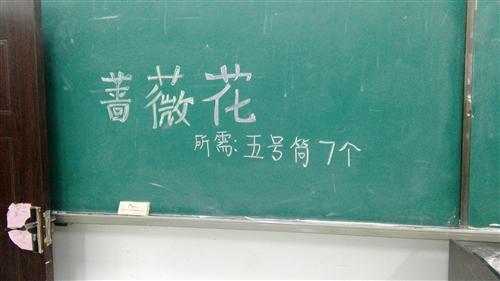 蔷薇花
所需:五号筒7个